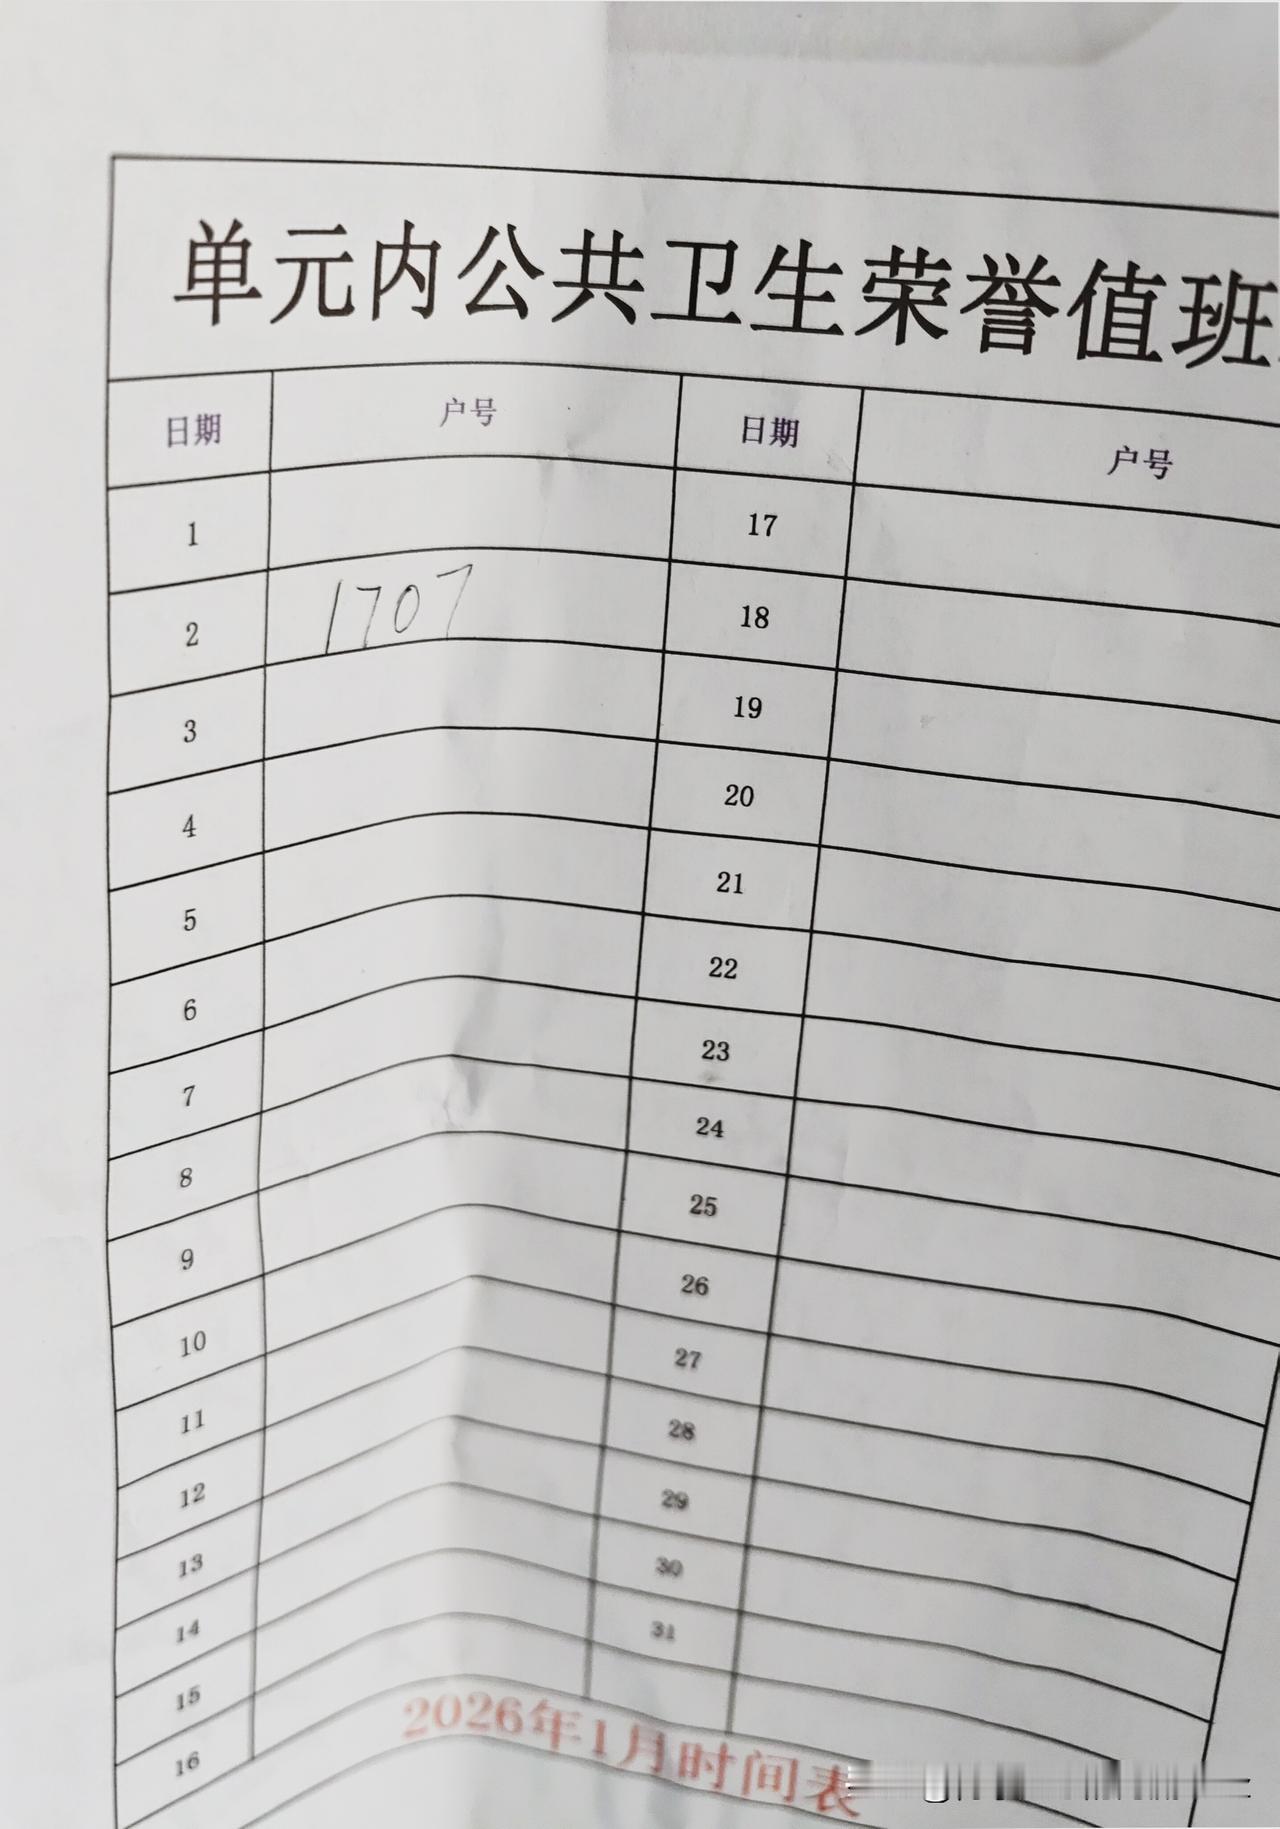 单元内公共卫生荣誉值班
日期 户号 日期 户号
1 17
2 1707 18
3 19
4 20
5 21
6 22
7 23
8 24
9 25
10 26
11 27
12 28
13 29
14 30
15 31
16
2026年1月时间表